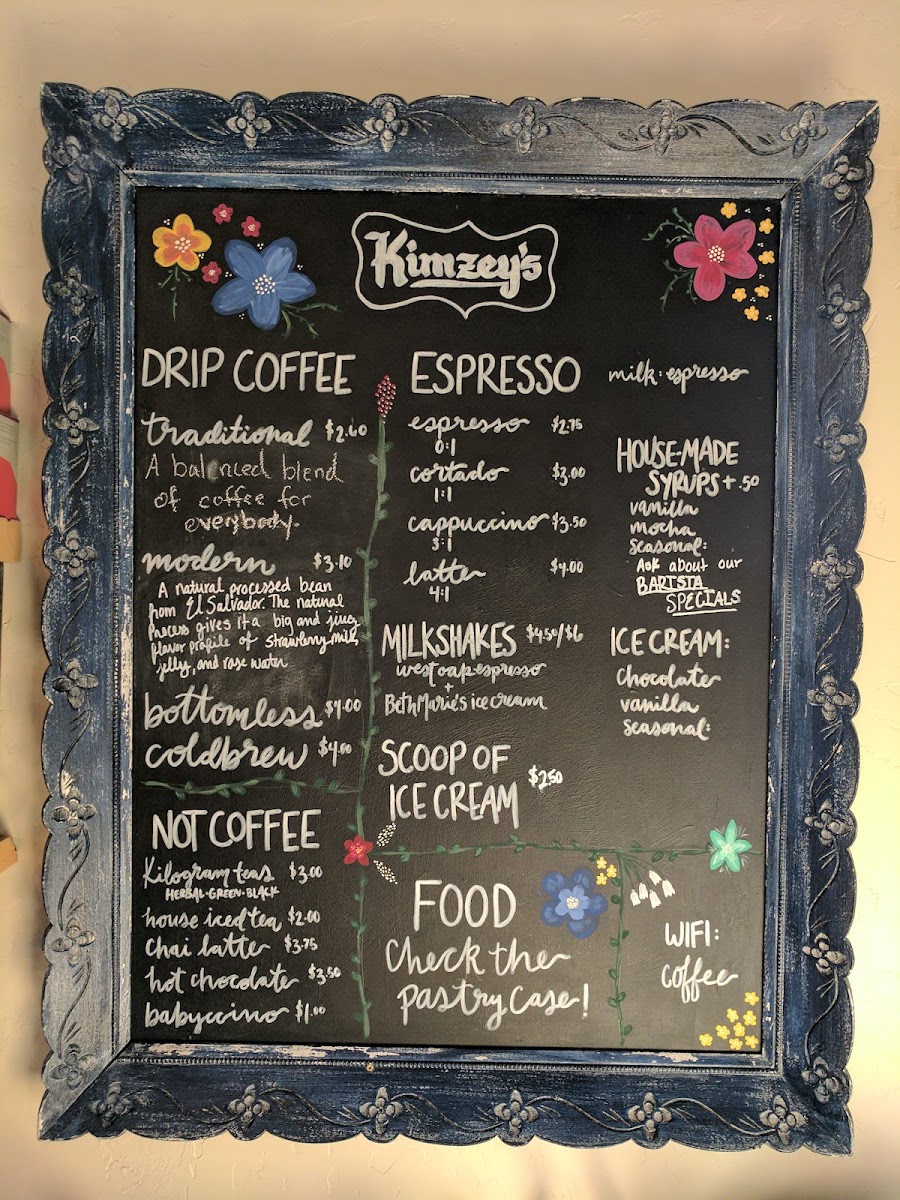 Kimzey's
DRIP COFFEE
traditional $2.60
A balanced blend
of coffee for
everybody.
modern $3.10
A natural processed bean
from El Salvador. The natural
process gives it a big and juicy
flavor profile of strawberry milk,
jelly, and rose water
bottomless $4.00
coldbrew $4.00
NOT COFFEE
Kilogram teas $3.00
HERBAL·GREEN·BLACK
house iced tea $2.00
chai latte $3.75
hot chocolate $3.50
babyccino $1.00
ESPRESSO milk:espresso
espresso $2.75
0:1
cortado $3.00
1:1
cappuccino $3.50
3:1
latte $4.00
4:1
MILKSHAKES $4.50/$6
west oak espresso
+
Beth Marie's ice cream
SCOOP OF
ICE CREAM $2.50
HOUSE-MADE
SYRUPS +.50
vanilla
mocha
seasonal:
Ask about our
BARISTA
SPECIALS
ICE CREAM:
chocolate
vanilla
seasonal:
FOOD
Check the
pastry case!
WIFI:
coffee